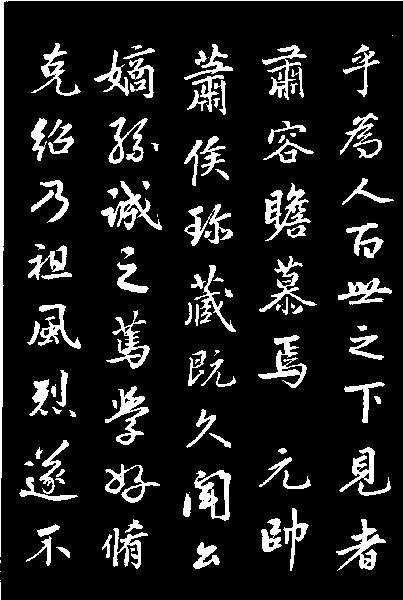 乎為人百世之下見者
肅容瞻慕焉 元帥
蕭侯珎藏既久聞公
嫡孫誠之篤學好脩
克紹乃祖風烈遂不